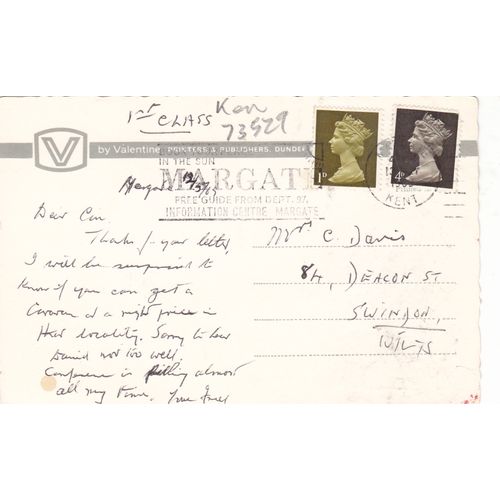 1st CLASS
Ken
73529
V by Valentine PRINTERS & PUBLISHERS, DUNDEE
IN THE SUN
MARGATE
FREE GUIDE FROM DEPT. 97,
INFORMATION CENTRE, MARGATE
1D
4D
KENT
Margate
Dear Con
Thanks for your letter,
I will be surprised to
know if you can get a
Caravan at a right price in
that locality. Sorry to hear
David not too well.
Conference is filling almost
all my time.
Mrs C. Davis
84, DEACON ST
SWINDON,
WILTS